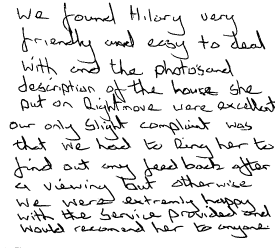 We found Hilary very
friendly and easy to deal
with and the photo's and
description of the house she
put on Rightmove were excellent
our only slight complaint was
that we had to Ring her to
find out any feed back after
a viewing but otherwise
we were extremly happy
with the Service provided and
would recomend her to anyone